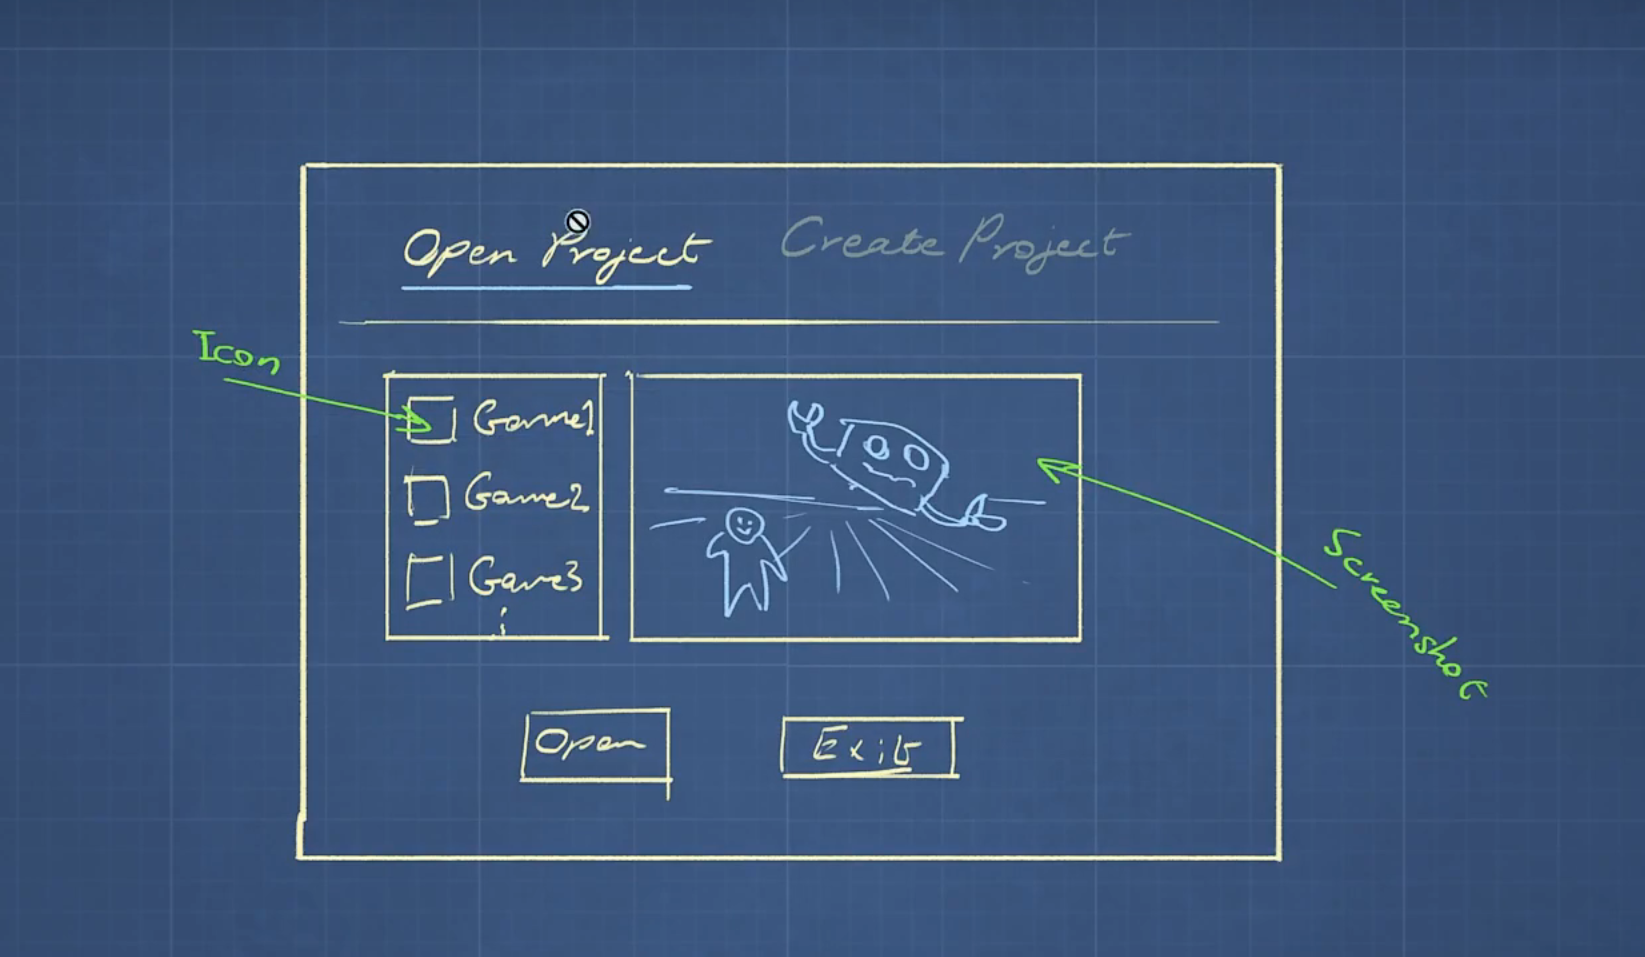 Open Project
Create Project
Icon
Game1
Game2
Game3
Screenshot
Open
Exit